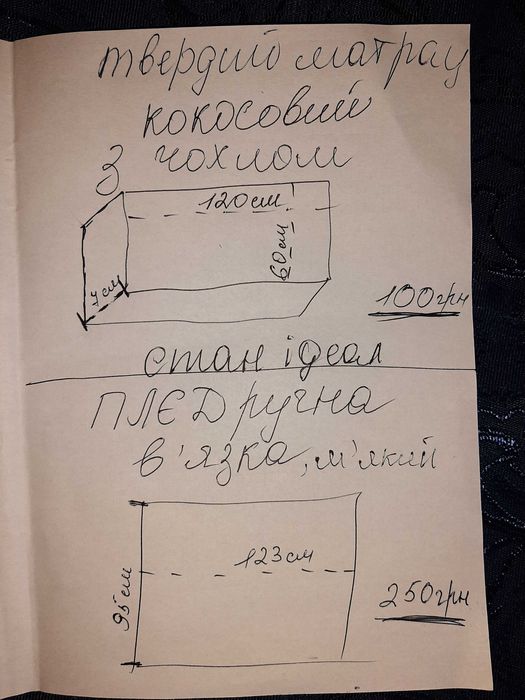 твердий матрац
кокосовий
з чохлом
120см
60см
7см
100грн
стан ідеал
ПЛЄД ручна
в'язка, м'який
123см
95см
250грн